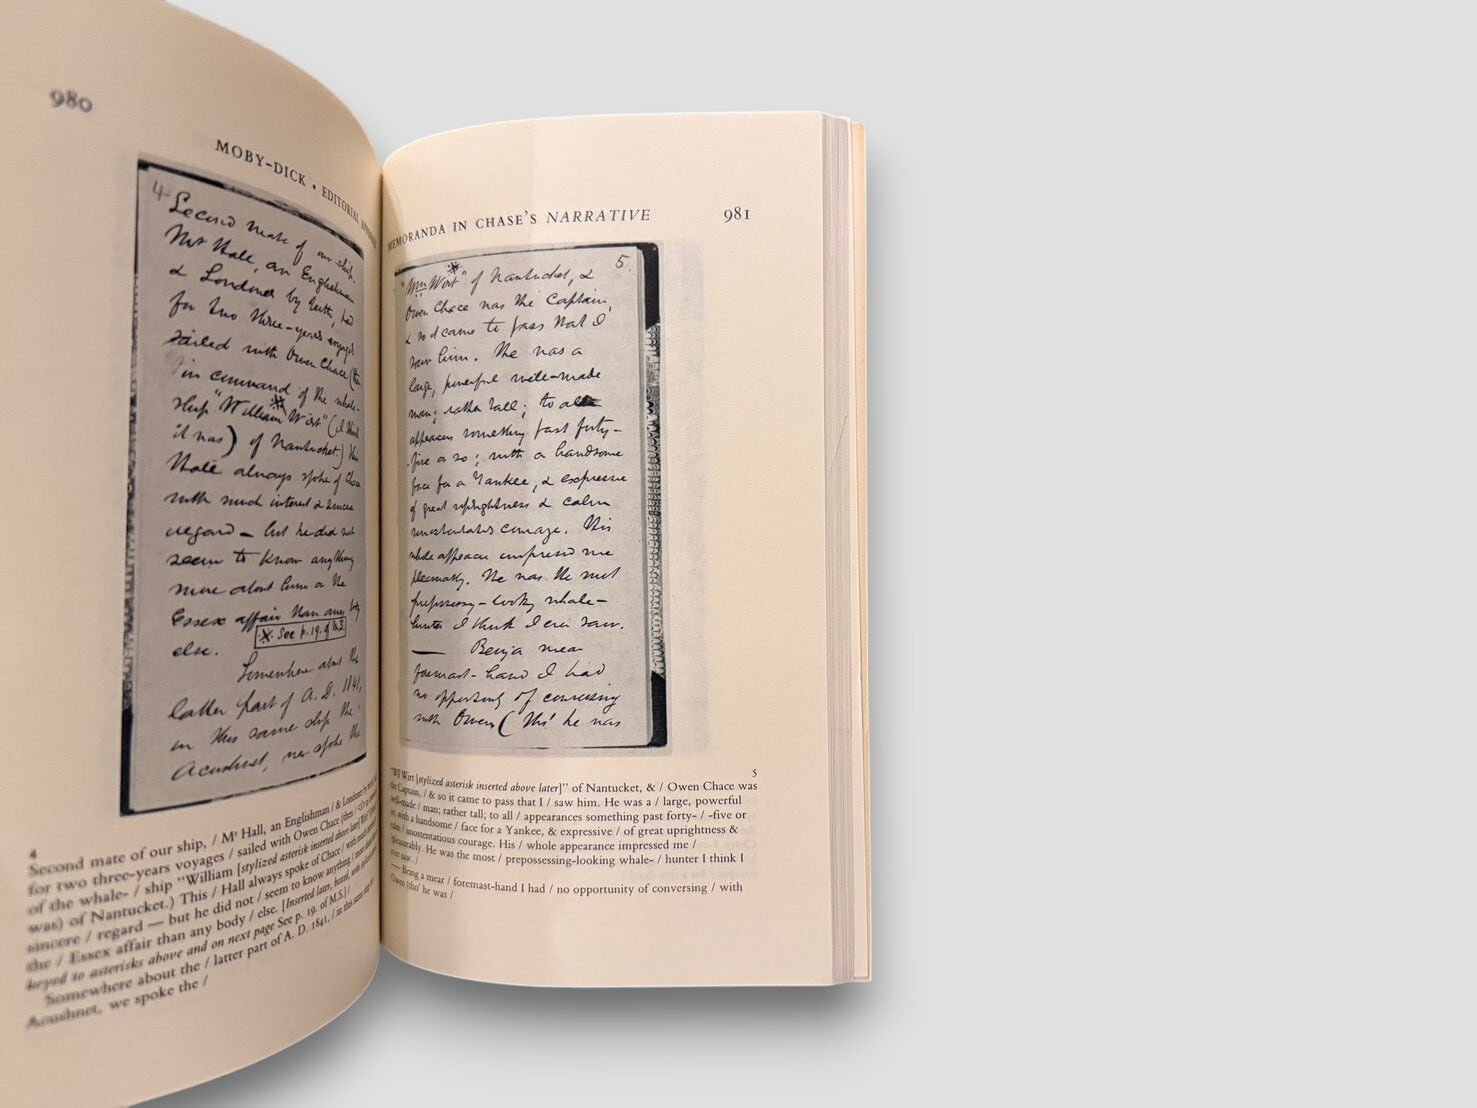 980
MOBY-DICK • EDITORIAL
4
Second mate of our ship,
Mr Hall, an Englishman
& Londoner by birth, had
for two three-years voyages
sailed with Owen Chace (then
in command of the whale-
ship "William Wirt" (I think
it was) of Nantucket.) This
Hall always spoke of Chace
with much interest & sincere
regard — but he did not
seem to know anything
more about him or the
Essex affair than any body
else.
X See p. 19. of M.S.
Somewhere about the
latter part of A. D. 1841,
in this same ship the
Acushnet, we spoke the
4
Second mate of our ship, / Mr Hall, an Englishman / & Londoner by
for two three-years voyages / sailed with Owen Chace (then /
of the whale- / ship "William [stylized asterisk inserted above later] Wirt"
was) of Nantucket.) This / Hall always spoke of Chace / with much
sincere / regard — but he did not / seem to know anything / more about
the / Essex affair than any body / else. [Inserted later, boxed, with
keyed to asterisks above and on next page See p. 19. of M.S.] /
Somewhere about the / latter part of A. D. 1841, / in this same ship the
Acushnet, we spoke the /
MEMORANDA IN CHASE'S NARRATIVE
981
5.
"Wm Wirt" of Nantucket, &
Owen Chace was the Captain,
& so it came to pass that I
saw him. He was a
large, powerful well-made
man; rather tall; to all
appearances something past forty-
-five or so; with a handsome
face for a Yankee, & expressive
of great uprightness & calm
unostentatious courage. His
whole appearance impressed me
pleasurably. He was the most
prepossessing-looking whale-
hunter I think I ever saw.
— Being a mear
foremast-hand I had
no opportunity of conversing
with Owen (tho' he was
5
Wirt [stylized asterisk inserted above later]" of Nantucket, & / Owen Chace was
the Captain, / & so it came to pass that I / saw him. He was a / large, powerful
well-made / man; rather tall; to all / appearances something past forty- / -five or
so; with a handsome / face for a Yankee, & expressive / of great uprightness &
calm / unostentatious courage. His / whole appearance impressed me /
pleasurably. He was the most / prepossessing-looking whale- / hunter I think I
ever saw. /
— Being a mear / foremast-hand I had / no opportunity of conversing / with
Owen (tho' he was /